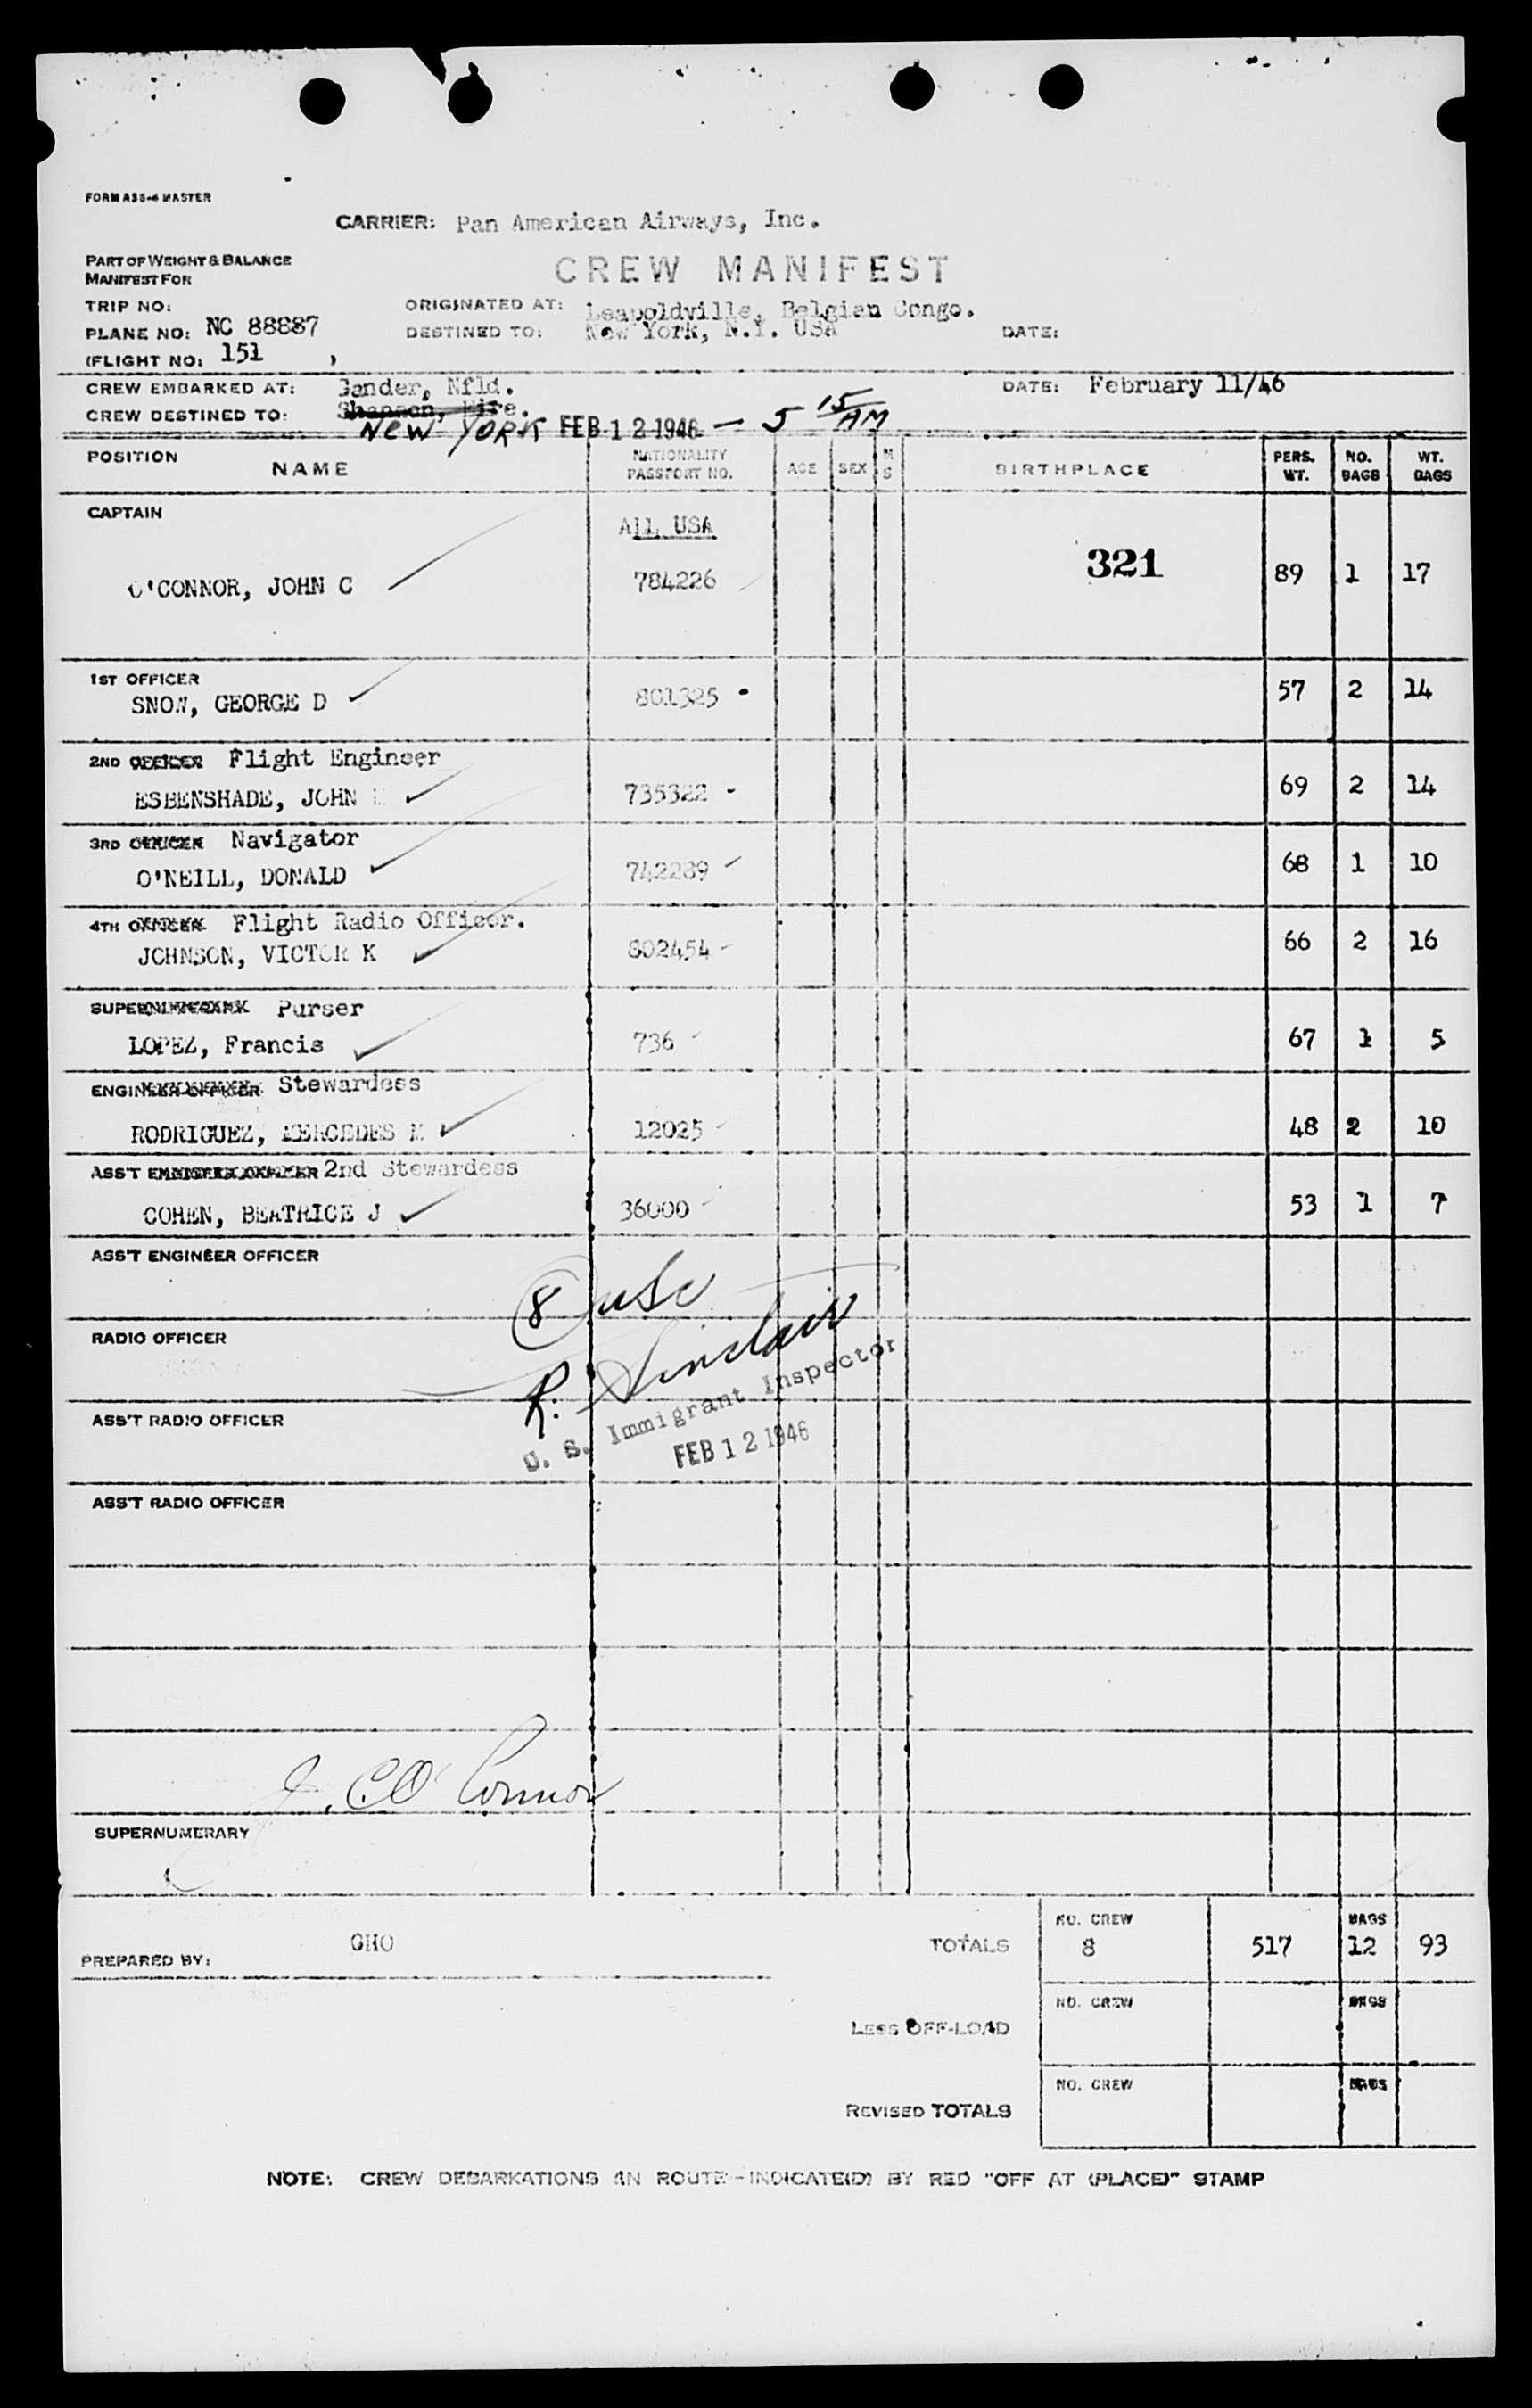 FORM ASS-4 MASTER
CARRIER: Pan American Airways, Inc.
PART OF WEIGHT & BALANCE
MANIFEST FOR
CREW MANIFEST
TRIP NO:
ORIGINATED AT: Leapoldville, Belgian Congo.
PLANE NO: NC 88887
DESTINED TO: New York, N.Y. USA
DATE:
(FLIGHT NO: 151 )
CREW EMBARKED AT: Gander, Nfld.
DATE: February 11/46
CREW DESTINED TO: Shannon, Eire.
NEW YORK FEB 12 1946 — 5 15 AM
POSITION NAME NATIONALITY PASSPORT NO. AGE SEX M S BIRTHPLACE PERS. WT. NO. BAGS WT. BAGS
CAPTAIN
All USA
321
O'CONNOR, JOHN C 784226 89 1 17
1ST OFFICER
SNOW, GEORGE D 801325 57 2 14
2ND OFFICER Flight Engineer
ESBENSHADE, JOHN 735322 69 2 14
3RD OFFICER Navigator
O'NEILL, DONALD 742289 68 1 10
4TH OFFICER Flight Radio Officer.
JOHNSON, VICTOR K 802454 66 2 16
SUPERNUMERARY Purser
LOPEZ, Francis 736 67 1 5
ENGINEER OFFICER Stewardess
RODRIGUEZ, MERCEDES M 12025 48 2 10
ASS'T ENGINEER OFFICER 2nd Stewardess
COHEN, BEATRICE J 36000 53 1 7
ASS'T ENGINEER OFFICER
8 usc
RADIO OFFICER
R. Sinclair
U. S. Immigrant Inspector
ASS'T RADIO OFFICER
FEB 12 1946
ASS'T RADIO OFFICER
J. C. O'Connor
SUPERNUMERARY
PREPARED BY: GHO
TOTALS NO. CREW 8 517 BAGS 12 93
LESS OFF-LOAD NO. CREW BAGS
REVISED TOTALS NO. CREW BAGS
NOTE: CREW DEBARKATIONS IN ROUTE - INDICATE(D) BY RED "OFF AT (PLACE)" STAMP